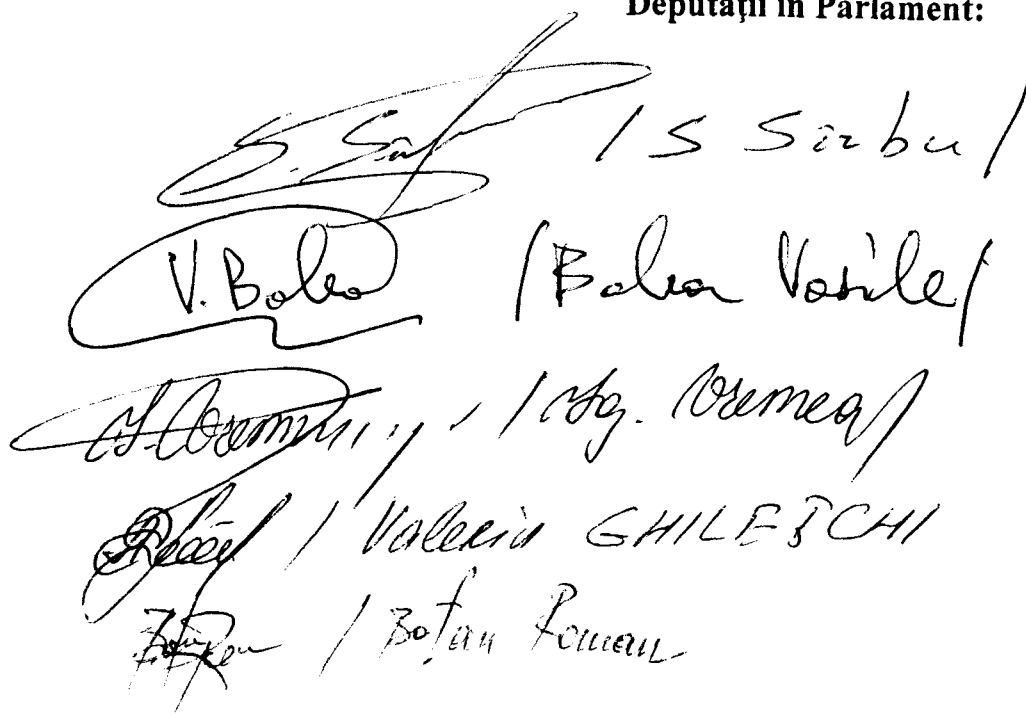 Deputații în Parlament:
/ S Sîrbu /
V. Bolea / Bolea Vasile /
/ Ig. Vremea /
/ Valeriu GHILEȚCHI
/ Boțan Roman